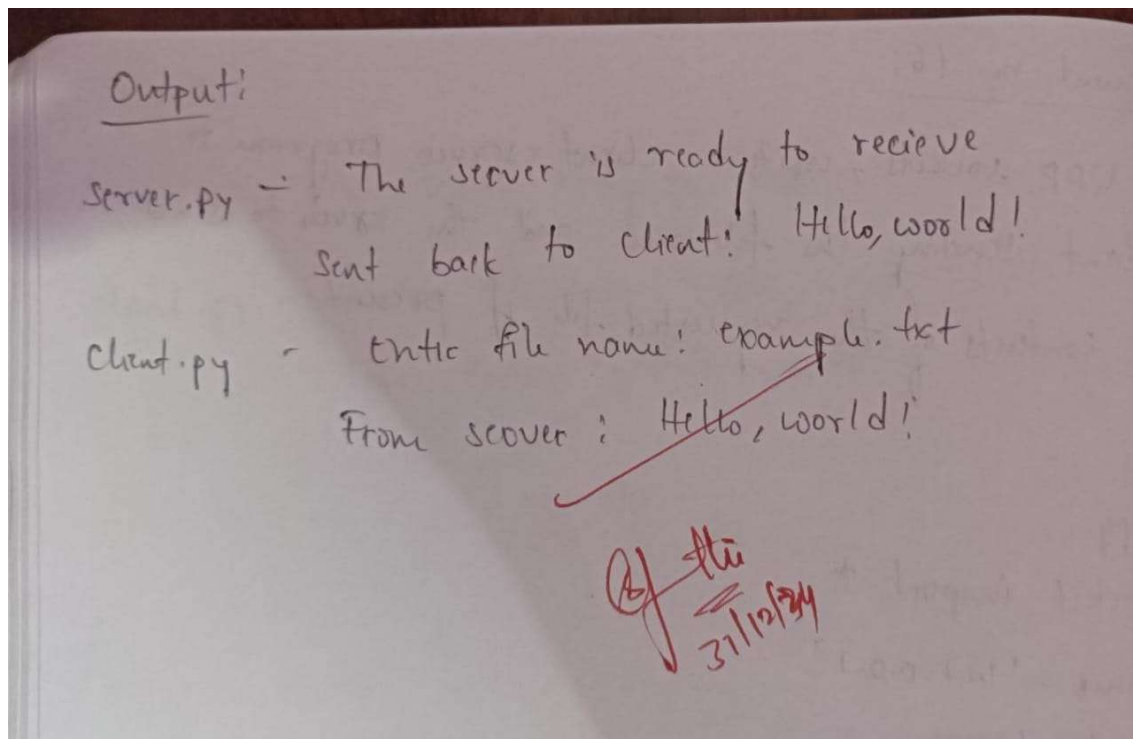 Output:
Server.py - The server is ready to recieve
Sent back to client: Hello, world!
Client.py - Enter file name: example.txt
From server: Hello, world!
31/12/24